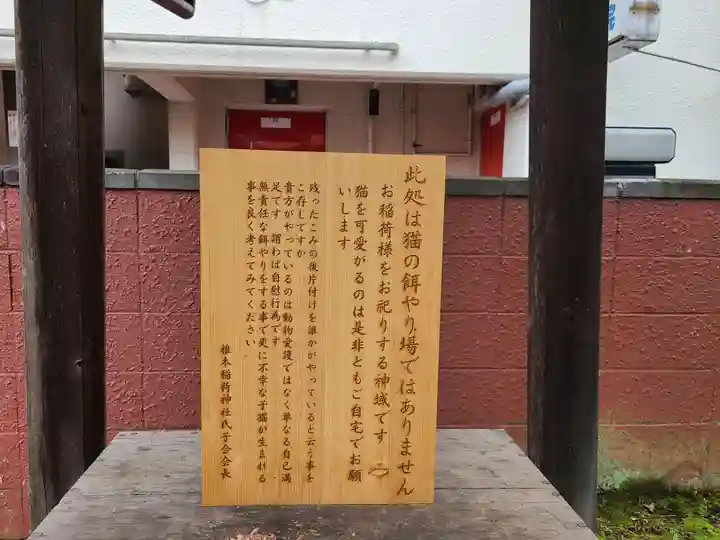 此処は猫の餌やり場ではありません
お稲荷様をお祀りする神域です
猫を可愛がるのは是非ともご自宅でお願
いします
残ったごみの後片付けを誰かがやっていると云う事を
ご存じですか
貴方がやっているのは動物愛護ではなく単なる自己満
足です 謂わば自慰行為です
無責任な餌やりをする事で更に不幸な子猫が生まれる
事を良く考えてみてください
椎木稲荷神社氏子会会長